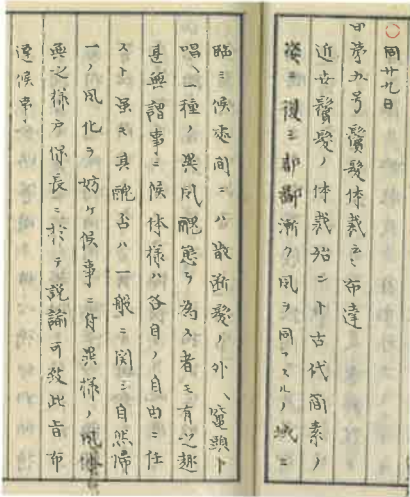 ○同廿九日
甲第五号鬢髪体裁云々布達
近世鬢髪ノ体裁殆ント古代簡素ノ
姿ニ復シ都鄙漸ク風ヲ同フスルノ域ニ
臨ミ候処間ニハ散断髪ノ外
唱ヘ一種ノ異風醜態ヲ為ス者モ有之趣
甚無謂事ニ候体様ハ各自ノ自由ニ任
スト雖モ其醜否ハ一般ニ関シ自然
一ノ風化ヲ妨ケ候事ニ付異様ノ風
無之様戸保長ニ於テ説諭可致此旨布
達候事